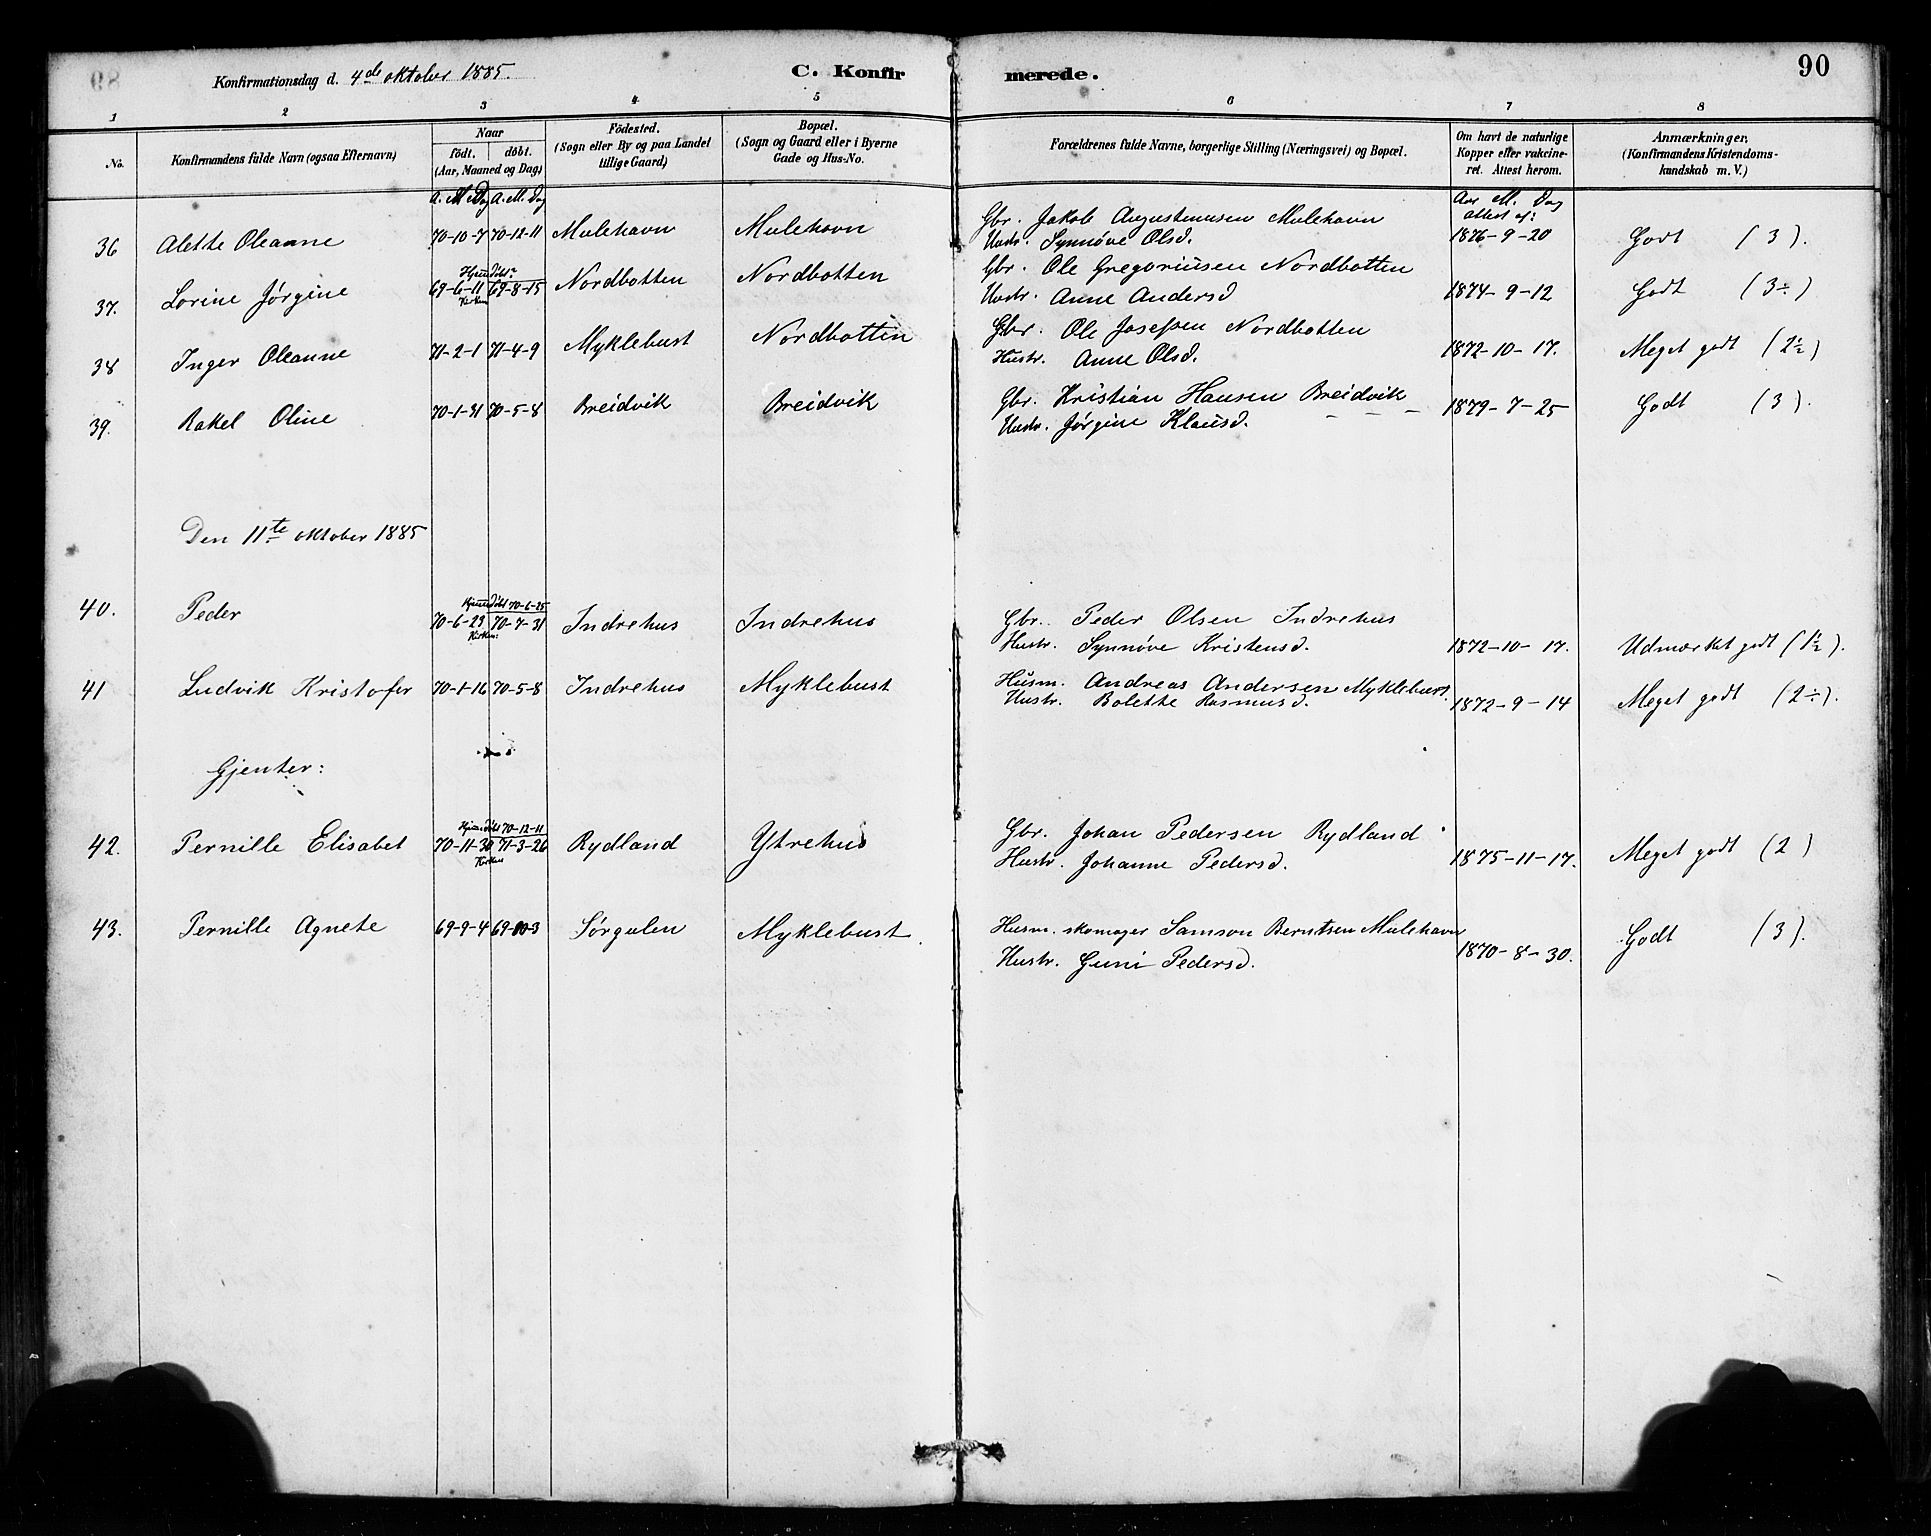 Konfirmationsdag d. 4de oktober 1885. C. Konfir merede. 90
1 2 3 4 5 6 7 8
No. Konfirmandens fulde Navn (ogsaa Efternavn) Naar födt. döbt. (Aar, Maaned og Dag) Födested. (Sogn eller By og paa Landet tillige Gaard) Bopæl. (Sogn og Gaard eller i Byerne Gade og Hus-No. Forældrenes fulde Navne, borgerlige Stilling (Næringsvei) og Bopæl. Om havt de naturlige Kopper eller vakcineret. Attest herom. Anmærkninger, (Konfirmandens Kristendomskundskab m. V.)
A. M. Dag A. M. Dag Aar M. Dag
attest af:
36 Alette Oleanne 70-10-7 70-12-11 Mulehavn Mulehavn Gbr. Jakob Augustinusen Mulehavn
Hustr. Synnøve Olsd. 1876-9-20 Godt (3).
37. Lorine Jørgine Hjemdöbt 69-6-11 69-8-15 Kirken Nordbotten Nordbotten Gbr. Ole Gregoriusen Nordbotten
Hustr. Anne Andersd 1874-9-12 Godt (3÷)
38 Inger Oleanne 71-2-1 71-4-9 Myklebust Nordbotten Gbr. Ole Josefsen Nordbotten
Hustr. Anne Olsd. 1872-10-17. Meget godt (2½)
39. Rakel Oline 70-1-31 70-5-8 Breidvik Breidvik Gbr. Kristian Hansen Breidvik
Hustr. Jørgine Klausd. - - - 1879-7-25 Godt (3).
Den 11te oktober 1885
40. Peder Hjemdöbt 70-6-25
70-6-23 70-7-31 Kirken: Indrehus Indrehus Gbr. Peder Olsen Indrehus
Hustr. Synnøve Kristensd. 1872-10-17. Udmærket godt (1½).
41 Ludvik Kristofer 70-1-16 70-5-8 Indrehus Myklebust Husm. Andreas Andersen Myklebust
Hustr. Bolette Rasmusd. 1872-9-14 Meget godt (2÷).
Gjenter:
42. Pernille Elisabet Hjemdöbt 70-12-11
70-11-30 71-3-26 Kirken Rydland Ytrehus Gbr. Johan Pedersen Rydland
Hustr. Johanne Pedersd. 1875-11-17. Meget godt (2)
43. Pernille Agnete 69-9-4 69-10-3 Sørgulen Myklebust. Husm. skomager Samson Berntsen Mulehavn
Hustr. Guni Pedersd. 1870-8-30. Godt (3).